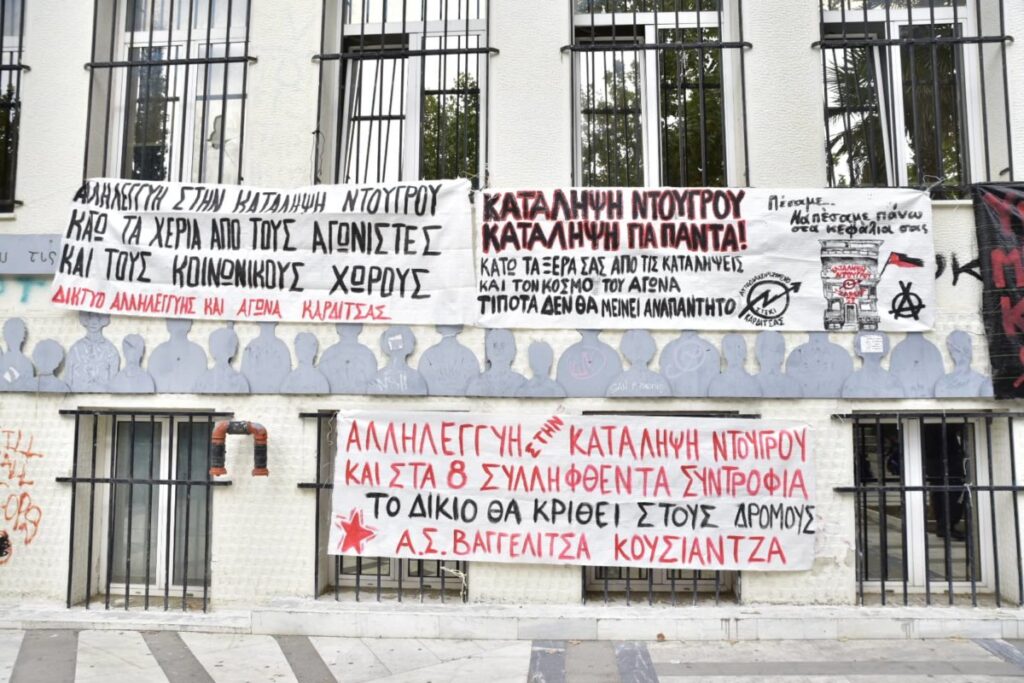 ΑΛΛΗΛΕΓΓΥΗ ΣΤΗΝ ΚΑΤΑΛΗΨΗ ΝΤΟΥΓΡΟΥ
ΚΑΤΩ ΤΑ ΧΕΡΙΑ ΑΠΟ ΤΟΥΣ ΑΓΩΝΙΣΤΕΣ
ΚΑΙ ΤΟΥΣ ΚΟΙΝΩΝΙΚΟΥΣ ΧΩΡΟΥΣ
ΔΙΚΤΥΟ ΑΛΛΗΛΕΓΓΥΗΣ ΚΑΙ ΑΓΩΝΑ ΚΑΡΔΙΤΣΑΣ
ΚΑΤΑΛΗΨΗ ΝΤΟΥΓΡΟΥ
ΚΑΤΑΛΗΨΗ ΓΙΑ ΠΑΝΤΑ!
ΚΑΤΩ ΤΑ ΞΕΡΑ ΣΑΣ ΑΠΟ ΤΙΣ ΚΑΤΑΛΗΨΕΙΣ
ΚΑΙ ΤΟΝ ΚΟΣΜΟ ΤΟΥ ΑΓΩΝΑ
ΤΙΠΟΤΑ ΔΕΝ ΘΑ ΜΕΙΝΕΙ ΑΝΑΠΑΝΤΗΤΟ
ΑΥΤΟΔΙΑΧΕΙΡΙΖΟΜΕΝΟ
ΣΤΕΚΙ
ΚΑΡΔΙΤΣΑΣ
Πέσαμε...
Να πέσαμε πάνω
στα κεφάλια σας
ΚΑΤΑΛΗΨΗ
ΝΤΟΥΓΡΟΥ
ΑΛΛΗΛΕΓΓΥΗ ΣΤΗΝ ΚΑΤΑΛΗΨΗ ΝΤΟΥΓΡΟΥ
ΚΑΙ ΣΤΑ 8 ΣΥΛΛΗΦΘΕΝΤΑ ΣΥΝΤΡΟΦΙΑ
ΤΟ ΔΙΚΙΟ ΘΑ ΚΡΙΘΕΙ ΣΤΟΥΣ ΔΡΟΜΟΥΣ
Α.Σ. ΒΑΓΓΕΛΙΤΣΑ ΚΟΥΣΙΑΝΤΖΑ